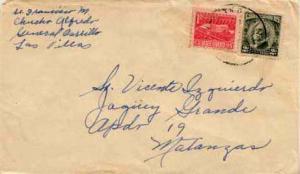 Francisco M
Chucho Alfredo
General Carrillo
Las Villas
Sr. Vicente Izquierdo
Jagüey Grande
Apdo 19
Matanzas